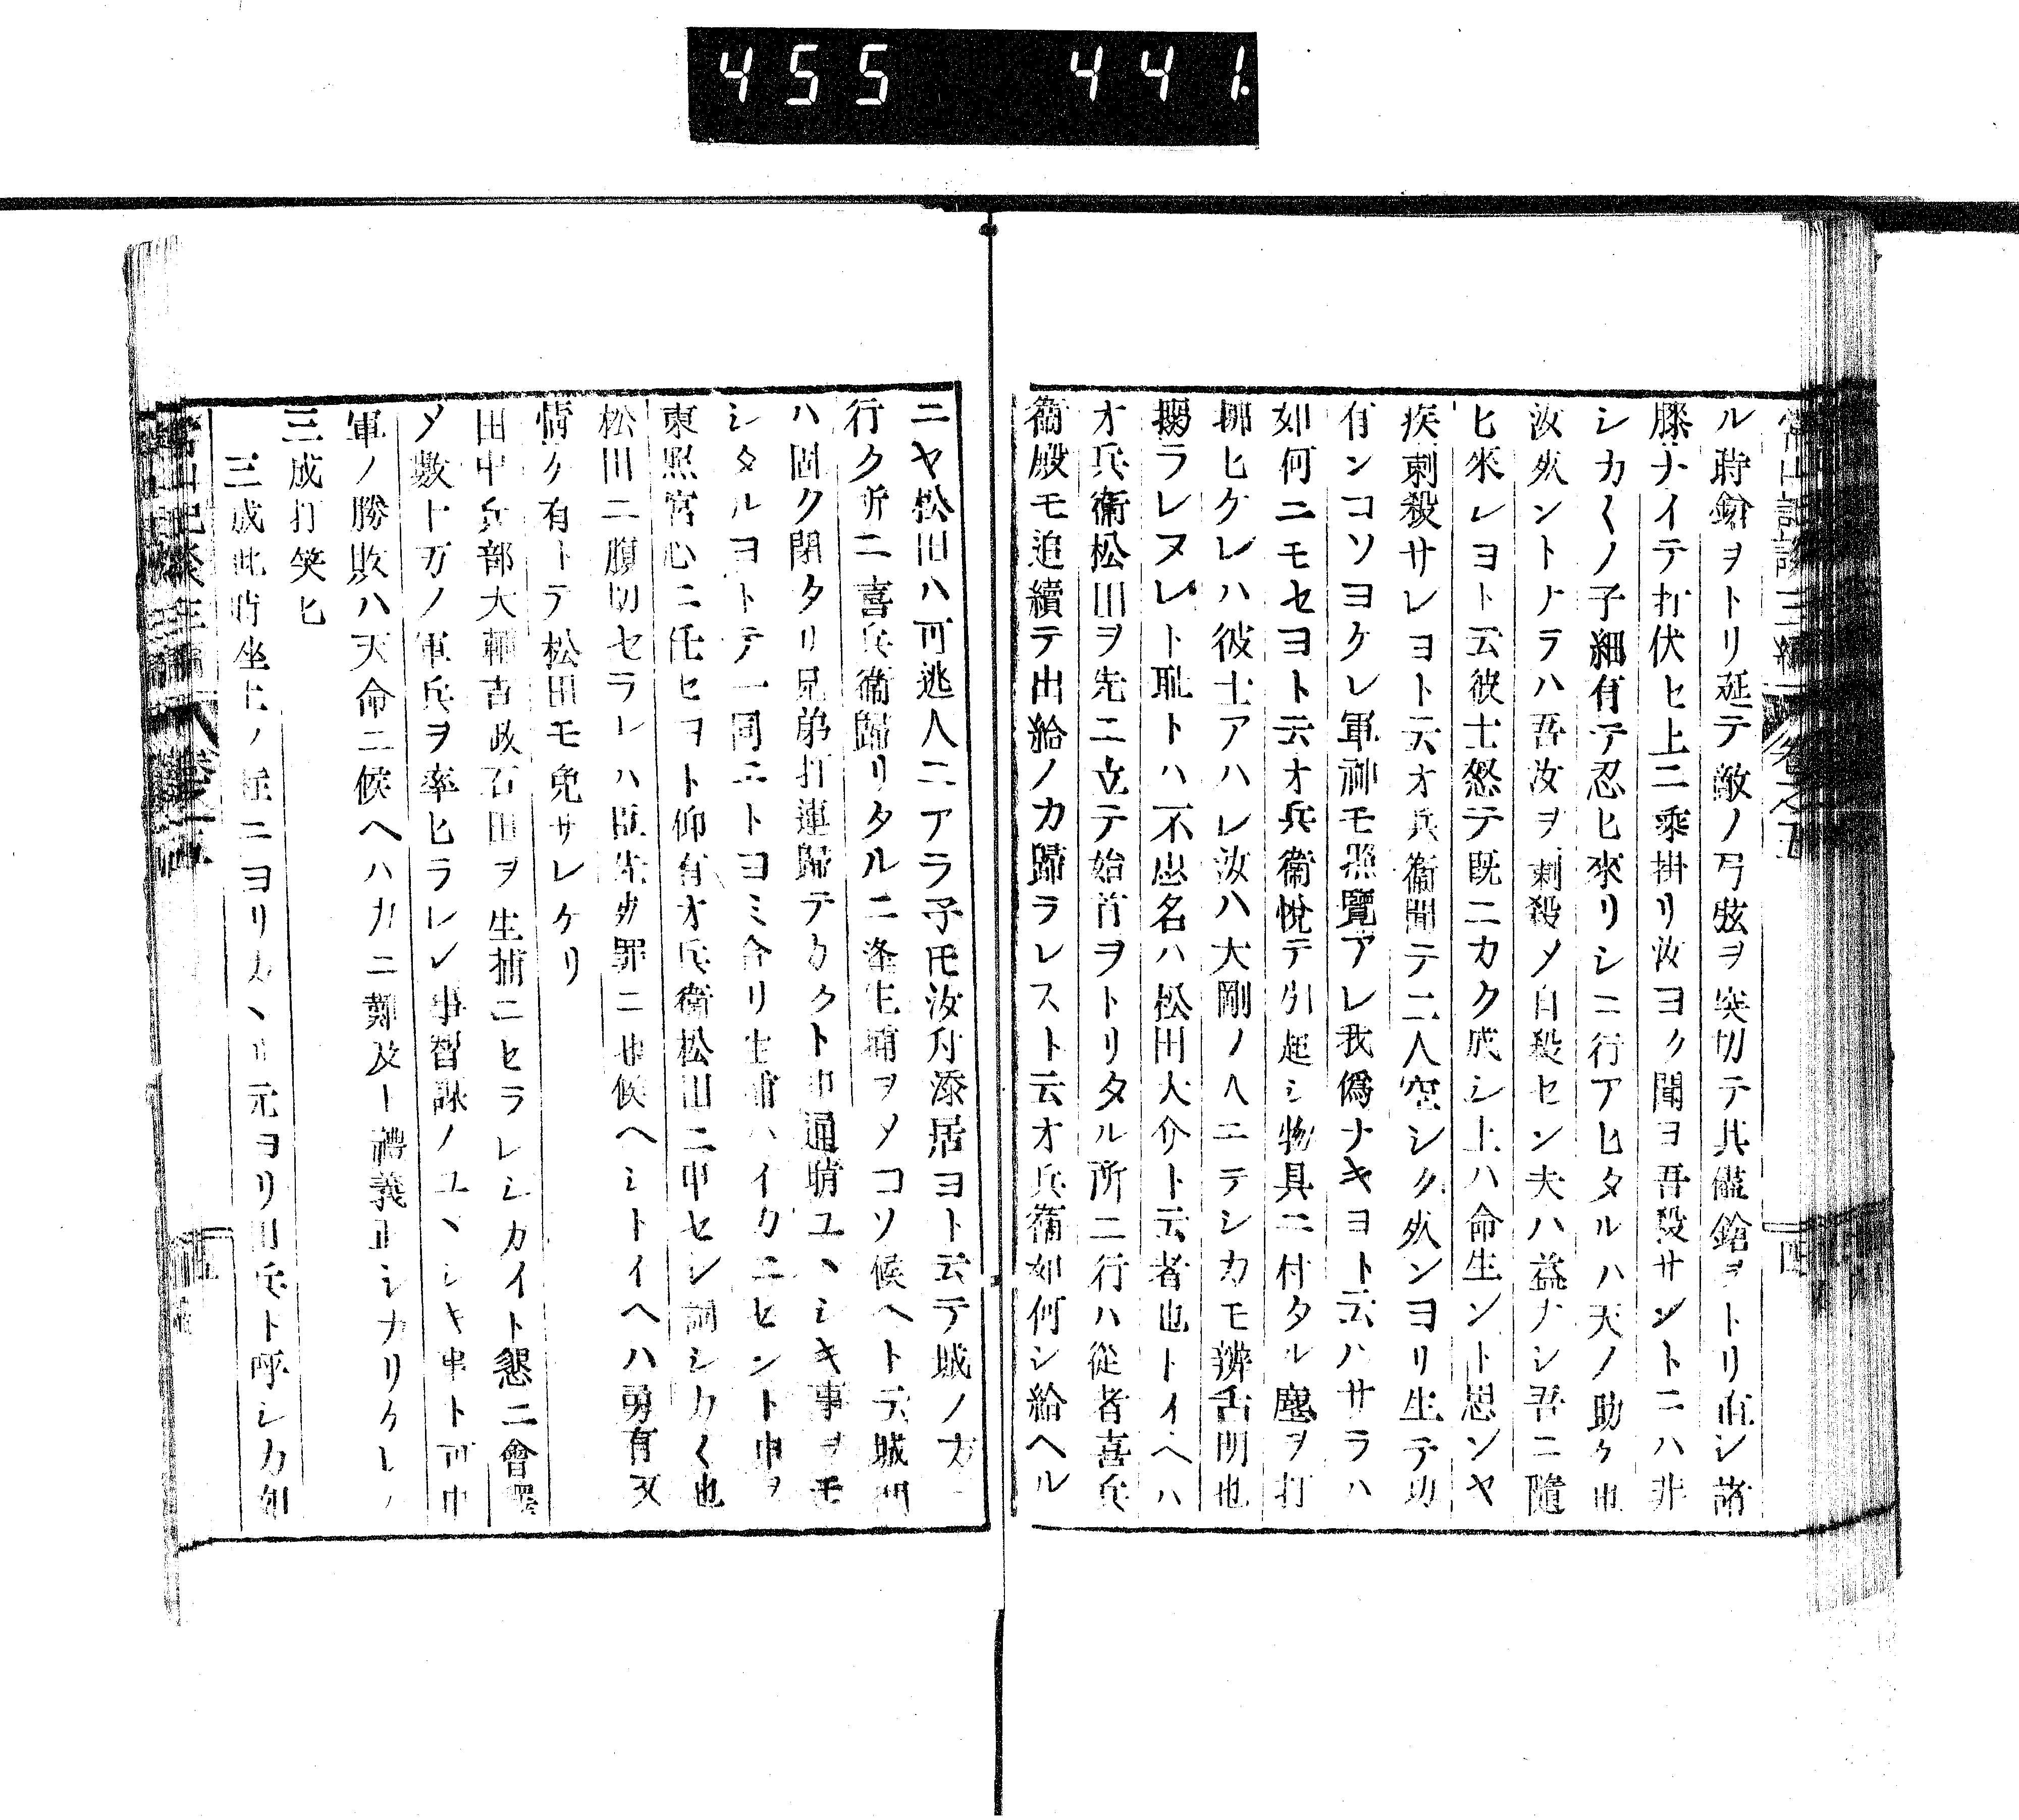 455 441
ル時鎗ヲトリ延テ敵ノ弓弦ヲ突切テ其儘鎗ヲトリ直シ諸
膝ナイテ打伏セ上ニ乘掛リ汝ヨク聞ヨ吾殺サントニハ非
シカ〱ノ子細有テ忍ヒ來リシニ行アヒタルハ天ノ助ケ也
汝死ントナラハ吾汝ヲ刺殺メ自殺セン夫ハ益ナシ吾ニ隨
ヒ來レヨト云彼士怒テ既ニカク成シ上ハ命生ント思ンヤ
疾刺殺サレヨト云オ兵衞聞テ二人空シク死ンヨリ生テ功
有ンコソヨクレ軍神モ照覽アレ我僞ナキヨト云ハサラハ
如何ニモセヨト云オ兵衞悅テ引起シ物具ニ付タル塵ヲ打
拂ヒケレハ彼士アハレ汝ハ大剛ノ人ニテシカモ辨舌明也
擱ラレヌレト恥トハ不思名ハ松田大介ト云者也トイヘハ
オ兵衞松田ヲ先ニ立テ始首ヲトリタル所ニ行ハ從者喜兵
衞殿モ追續テ出給ノカ歸ラレスト云オ兵衞如何シ給ヘル
ニヤ松田ハ可逃人ニアラ子𪜈汝付添居ヨト云テ城ノ方
行ク所ニ喜兵衞歸リタルニ逢生捕ヲメコソ候ヘト云城門
ハ固ク閉タリ兄弟打連歸テカクト申通晴ユヽシキ事ヲモ
シタルヨトテ一同ニトヨミ合リ生捕ハイカニセント申ヲ
東照宮心ニ任セヨト仰有オ兵衞松田ニ申セシ詞シカ〱也
松田ニ腹切セラレハ臣先死罪ニ也候ヘシトイヘハ勇有又
情ケ有トテ松田モ免サレケリ
田中兵部大輔吉政石田ヲ生捕ニセラレシカイト懇ニ會釋
メ數十万ノ軍兵ヲ率ヒラレシ事智謀ノユヽシキ事ト可申
軍ノ勝敗ハ天命ニ候ヘハ力ニ難及ト禮義正シカリケレハ
三成打笑ヒ
三成此時坐上ノ
ニヨリカヽリ元ヨリ田兵ト呼シカ如